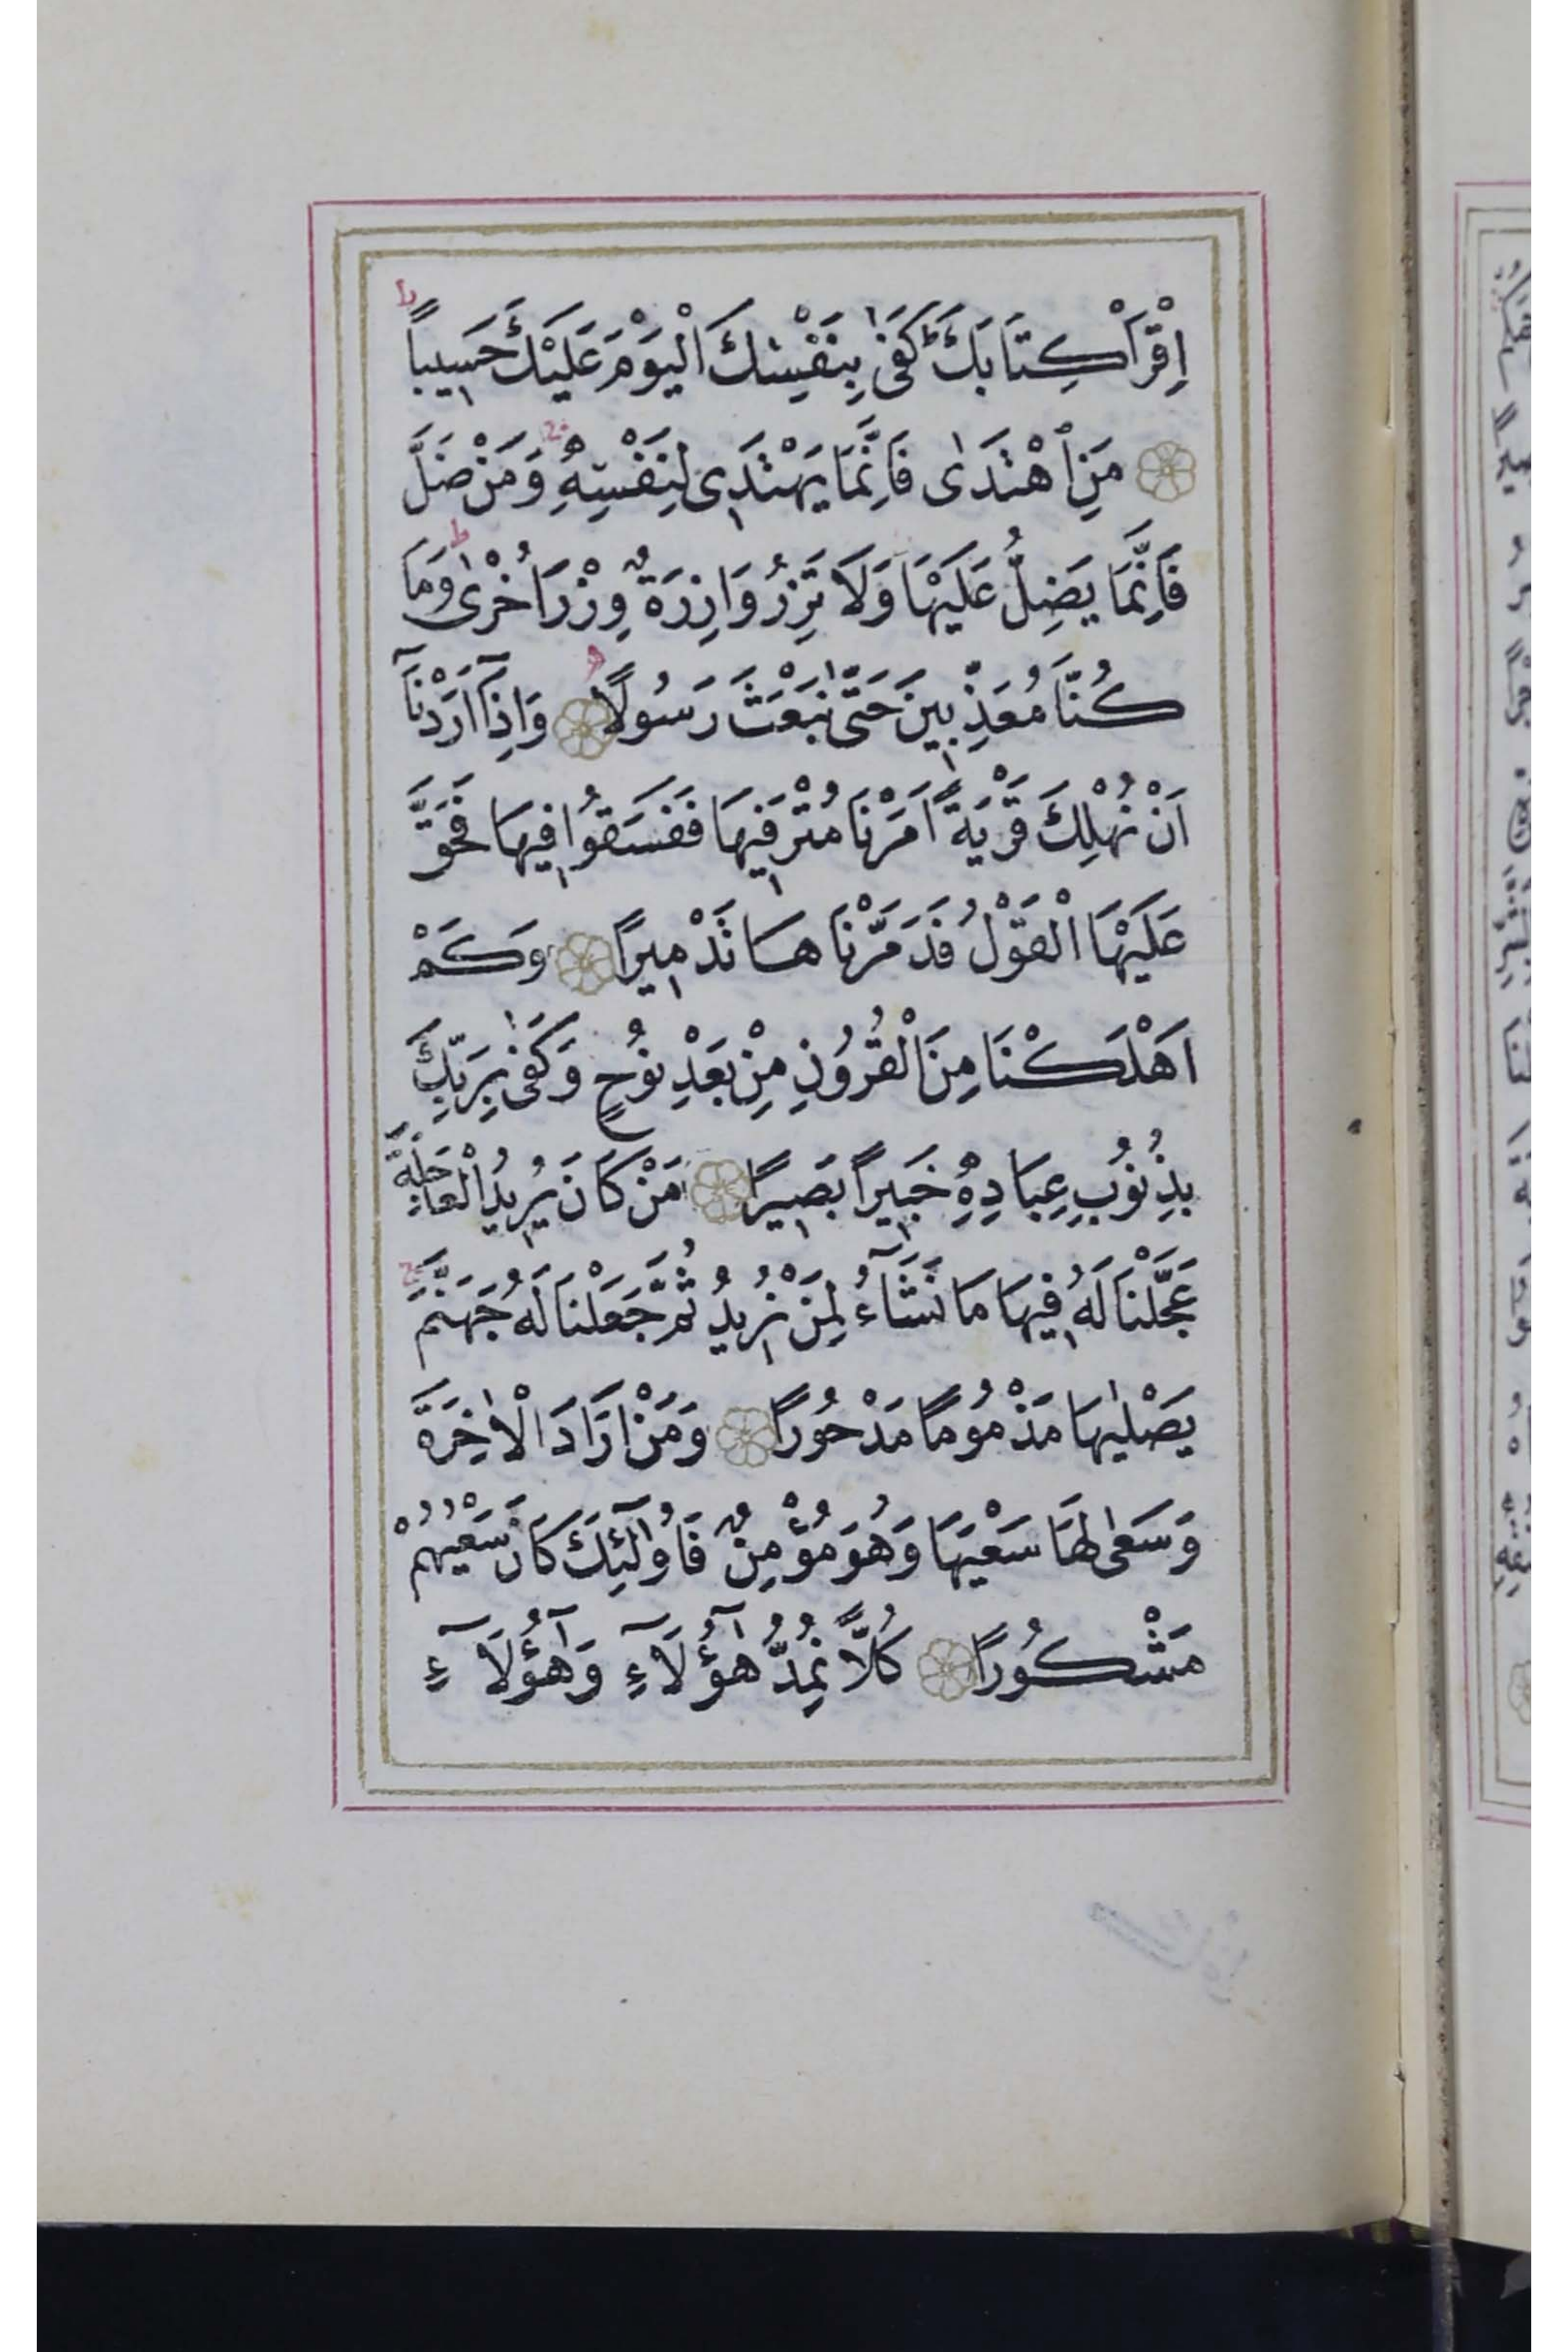 اِقْرَاْ كِتَابَكَ كَفٰى بِنَفْسِكَ الْيَوْمَ عَلَيْكَ حَسِيبًا
مَنِ اهْتَدٰى فَاِنَّمَا يَهْتَدِى لِنَفْسِهِ وَمَنْ ضَلَّ
فَاِنَّمَا يَضِلُّ عَلَيْهَا وَلَا تَزِرُ وَازِرَةٌ وِزْرَ اُخْرٰى وَمَا
كُنَّا مُعَذِّبِينَ حَتّٰى نَبْعَثَ رَسُولًا وَاِذَٓا اَرَدْنَٓا
اَنْ نُهْلِكَ قَرْيَةً اَمَرْنَا مُتْرَفِيهَا فَفَسَقُوا فِيهَا فَحَقَّ
عَلَيْهَا الْقَوْلُ فَدَمَّرْنَاهَا تَدْمِيرًا وَكَمْ
اَهْلَكْنَا مِنَ الْقُرُونِ مِنْ بَعْدِ نُوحٍ وَكَفٰى بِرَبِّكَ
بِذُنُوبِ عِبَادِهِ خَبِيرًا بَصِيرًا مَنْ كَانَ يُرِيدُ الْعَاجِلَةَ
عَجَّلْنَا لَهُ فِيهَا مَا نَشَٓاءُ لِمَنْ نُرِيدُ ثُمَّ جَعَلْنَا لَهُ جَهَنَّمَ
يَصْلٰيهَا مَذْمُومًا مَدْحُورًا وَمَنْ اَرَادَ الْاٰخِرَةَ
وَسَعٰى لَهَا سَعْيَهَا وَهُوَ مُؤْمِنٌ فَاُولٰٓئِكَ كَانَ سَعْيُهُمْ
مَشْكُورًا كُلًّا نُمِدُّ هٰٓؤُلَٓاءِ وَهٰٓؤُلَٓاءِ